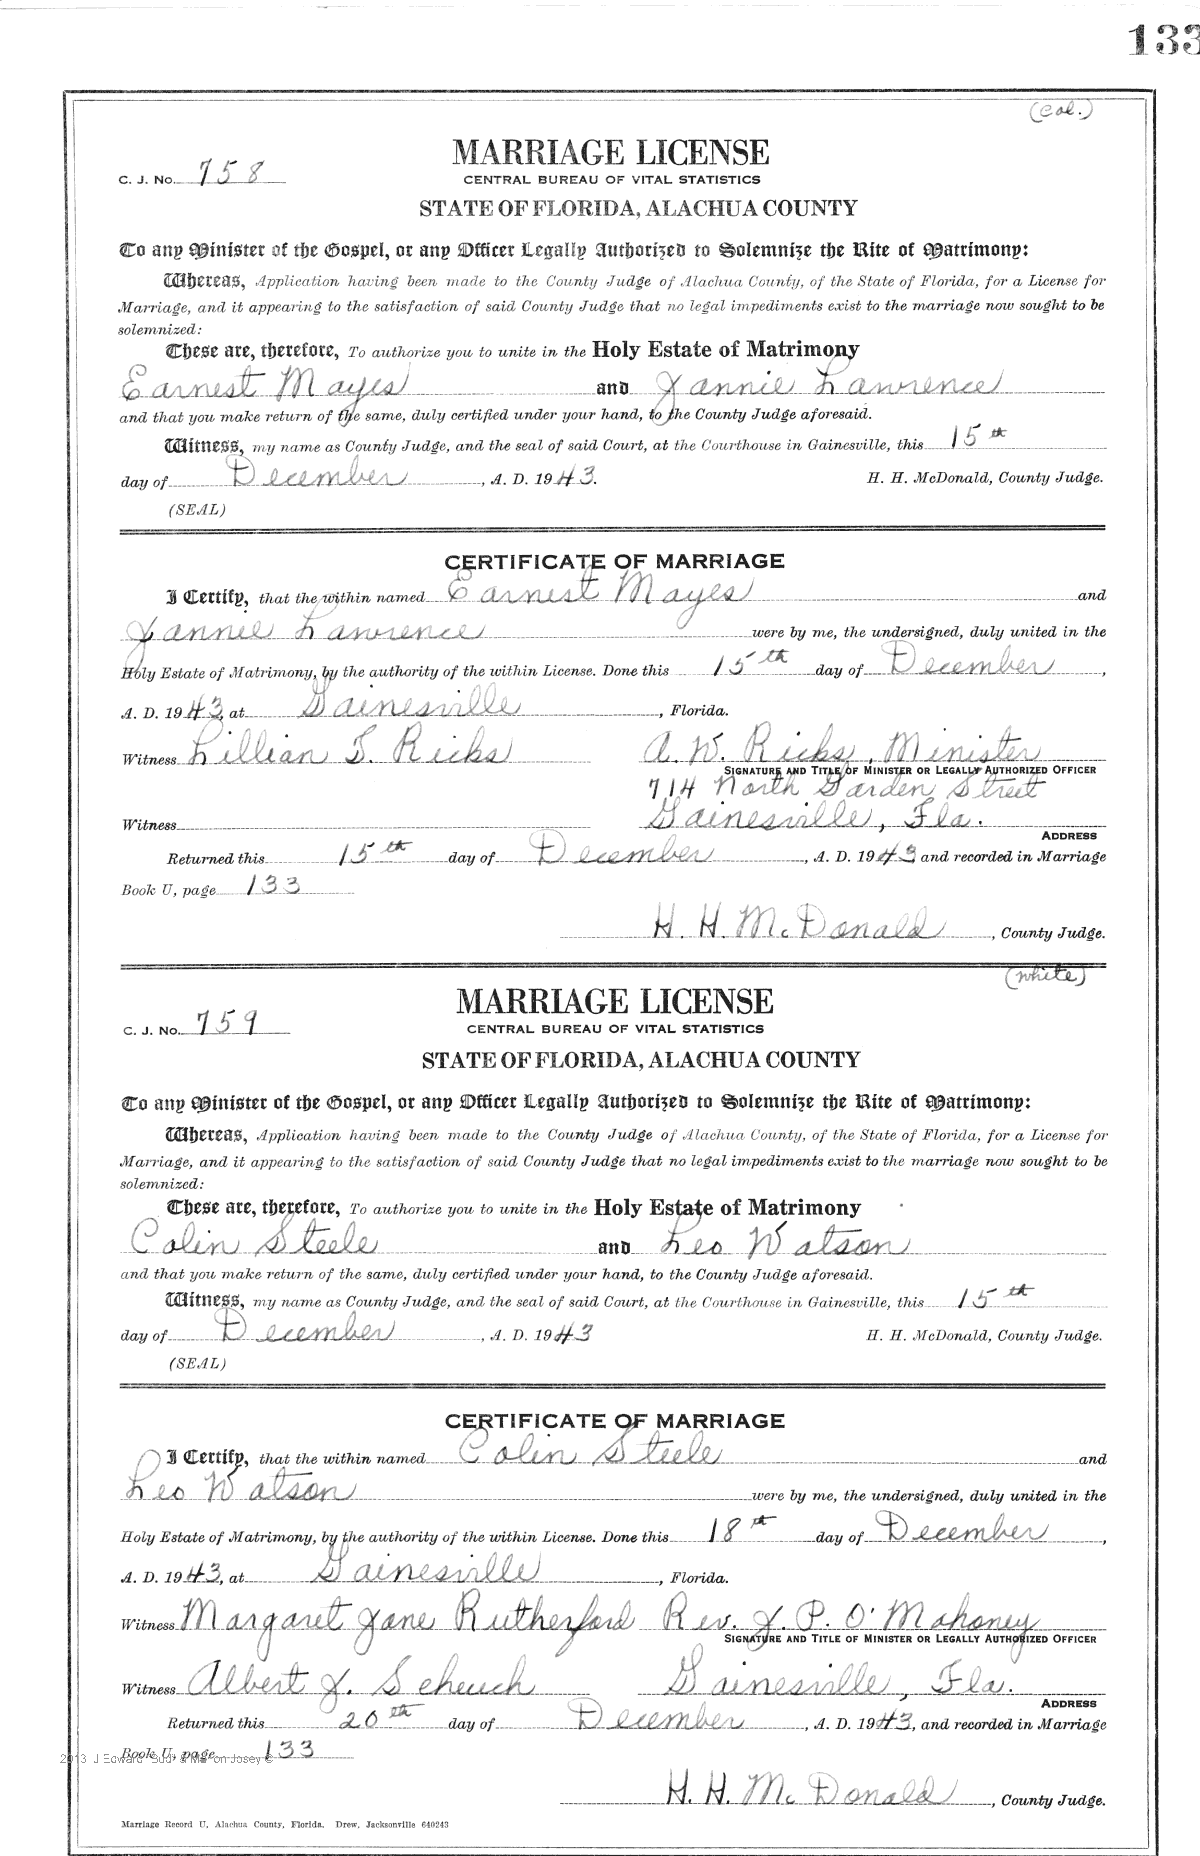 133
(Col.)
MARRIAGE LICENSE
C. J. No. 758
CENTRAL BUREAU OF VITAL STATISTICS
STATE OF FLORIDA, ALACHUA COUNTY
To any Minister of the Gospel, or any Officer Legally Authorized to Solemnize the Rite of Matrimony:
Whereas, Application having been made to the County Judge of Alachua County, of the State of Florida, for a License for
Marriage, and it appearing to the satisfaction of said County Judge that no legal impediments exist to the marriage now sought to be
solemnized:
These are, therefore, To authorize you to unite in the Holy Estate of Matrimony
Earnest Mayes and Jannie Lawrence
and that you make return of the same, duly certified under your hand, to the County Judge aforesaid.
Witness, my name as County Judge, and the seal of said Court, at the Courthouse in Gainesville, this 15th
day of December, A. D. 1943. H. H. McDonald, County Judge.
(SEAL)
CERTIFICATE OF MARRIAGE
I Certify, that the within named Earnest Mayes and
Jannie Lawrence were by me, the undersigned, duly united in the
Holy Estate of Matrimony, by the authority of the within License. Done this 15th day of December,
A. D. 1943, at Gainesville, Florida.
Witness Lillian T. Ricks A. W. Ricks, Minister
SIGNATURE AND TITLE OF MINISTER OR LEGALLY AUTHORIZED OFFICER
714 North Garden Street
Witness Gainesville, Fla.
ADDRESS
Returned this 15th day of December, A. D. 1943 and recorded in Marriage
Book U, page 133
H. H. McDonald, County Judge.
(white)
MARRIAGE LICENSE
C. J. No. 759
CENTRAL BUREAU OF VITAL STATISTICS
STATE OF FLORIDA, ALACHUA COUNTY
To any Minister of the Gospel, or any Officer Legally Authorized to Solemnize the Rite of Matrimony:
Whereas, Application having been made to the County Judge of Alachua County, of the State of Florida, for a License for
Marriage, and it appearing to the satisfaction of said County Judge that no legal impediments exist to the marriage now sought to be
solemnized:
These are, therefore, To authorize you to unite in the Holy Estate of Matrimony
Colin Steele and Leo Watson
and that you make return of the same, duly certified under your hand, to the County Judge aforesaid.
Witness, my name as County Judge, and the seal of said Court, at the Courthouse in Gainesville, this 15th
day of December, A. D. 1943 H. H. McDonald, County Judge.
(SEAL)
CERTIFICATE OF MARRIAGE
I Certify, that the within named Colin Steele and
Leo Watson were by me, the undersigned, duly united in the
Holy Estate of Matrimony, by the authority of the within License. Done this 18th day of December,
A. D. 1943, at Gainesville, Florida.
Witness Margaret Jane Rutherford Rev. J. P. O'Mahoney
SIGNATURE AND TITLE OF MINISTER OR LEGALLY AUTHORIZED OFFICER
Witness Albert J. Scheuch Gainesville, Fla.
ADDRESS
Returned this 20th day of December, A. D. 1943, and recorded in Marriage
Book U, page 133
2013 J Edward "Bud" & Marion Josey ©
H. H. McDonald, County Judge.
Marriage Record U, Alachua County, Florida. Drew, Jacksonville 640243